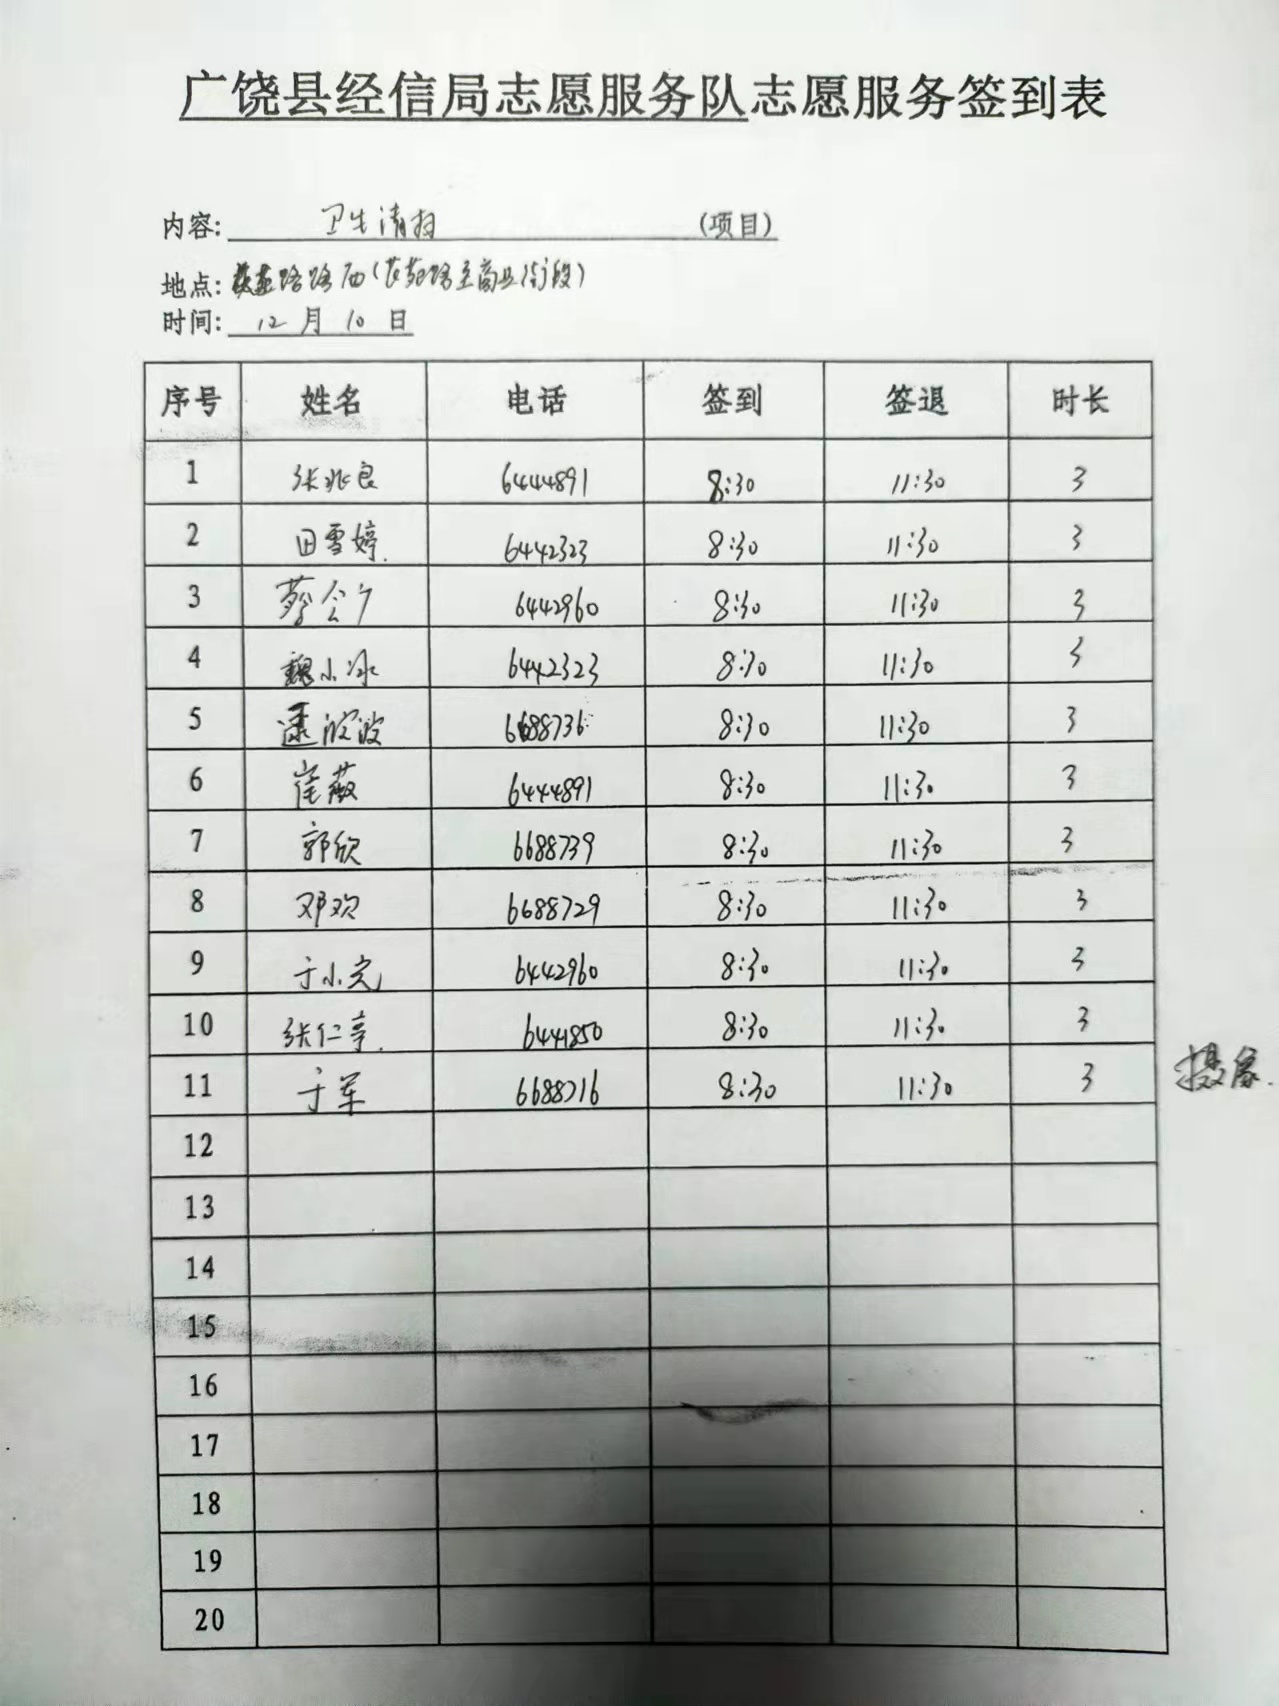 广饶县经信局志愿服务队志愿服务签到表
内容: 卫生清扫 (项目)
地点: 路路西(苑路至商业街段)
时间: 12 月 10 日
序号 姓名 电话 签到 签退 时长
1 张兆良 6444891 8:30 11:30 3
2 田雪婷 6442323 8:30 11:30 3
3 6442960 8:30 11:30 3
4 魏小冰 6442323 8:30 11:30 3
5 逯波波 6688736 8:30 11:30 3
6 崔薇 6444891 8:30 11:30 3
7 郭欣 6688739 8:30 11:30 3
8 邓欢 6688729 8:30 11:30 3
9 于小完 6442960 8:30 11:30 3
10 张仁亭 6441850 8:30 11:30 3
11 于军 6688716 8:30 11:30 3 摄像
12
13
14
15
16
17
18
19
20